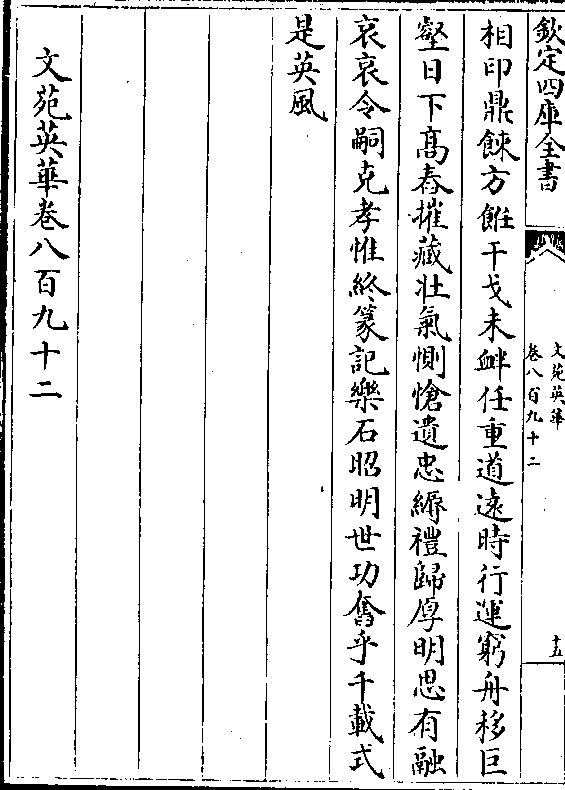 欽定四庫全書
文苑英華
卷八百九十二
十五
相印鼎餗方餁干戈未衅任重道遠時行運窮舟移巨
壑日下髙舂摧藏壮氣惻愴遺忠縟禮歸厚明思有融
哀哀令嗣克孝惟終篆記樂石昭明世功奮乎千載式
是英風
文苑英華卷八百九十二